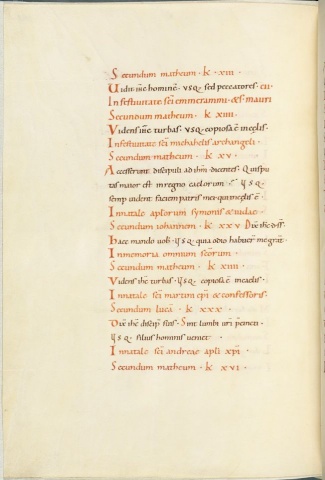 Secundum matheum · k xiii ·
Uidit ihc hominē · usq· sed peccatores · cu·
In festiuitate sc̄i emmerammi & sc̄i mauri
Secundum matheum · k xiiii ·
Uidens ihc turbas · usq· copiosa ē in cęlis ·
In festiuitate sc̄i michahelis archangeli ·
Secundum matheum · k xv ·
Accesserunt discipuli ad ihm dicentes · Quis pu
tas maior est in regno caelorum · usq·
semp uident faciem patris mei qui in cęlis ē
In natale apl̄orum symonis & iudae
Secundum iohannem · k xxv Dix̄ ihc
Haec mando uob · usq· quia odio habuer me gratis
In memoria omnium sc̄orum
Secundum matheum · k xiiii
Videns ihc turbas · usq· copiosa ē in caelis ·
In natale sc̄i martini ep̄i & confessoris ·
Secundum lucā · k xxx ·
Dix̄ ihc discip suis · Sint lumbi uri p̄cincti ·
usq· filius hominis ueniet
In natale sc̄i andreae apl̄i xp̄i
Secundum matheum · k xvi ·